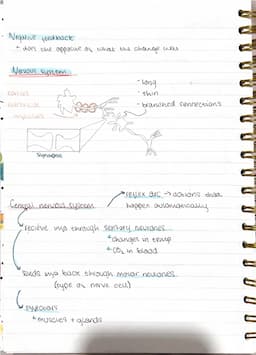 Negative feedback
+ does the opposite of what the change was
Nervous system
- long
- thin
- branched connections
Synapse
reflex arc → actions that
happen automatically
Central nervous system
receive info through sensory neurones
+ changes in temp
+ CO₂ in blood
sends info back through motor neurones
(type of nerve cell)
effectors
+ muscles + glands